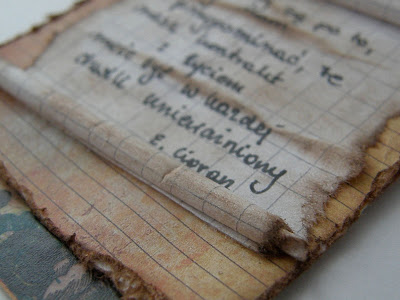 się po to,
przypominać, że
nasz kontrakt
z życiem
może być w każdej
chwili unieważniony
E. Cioran